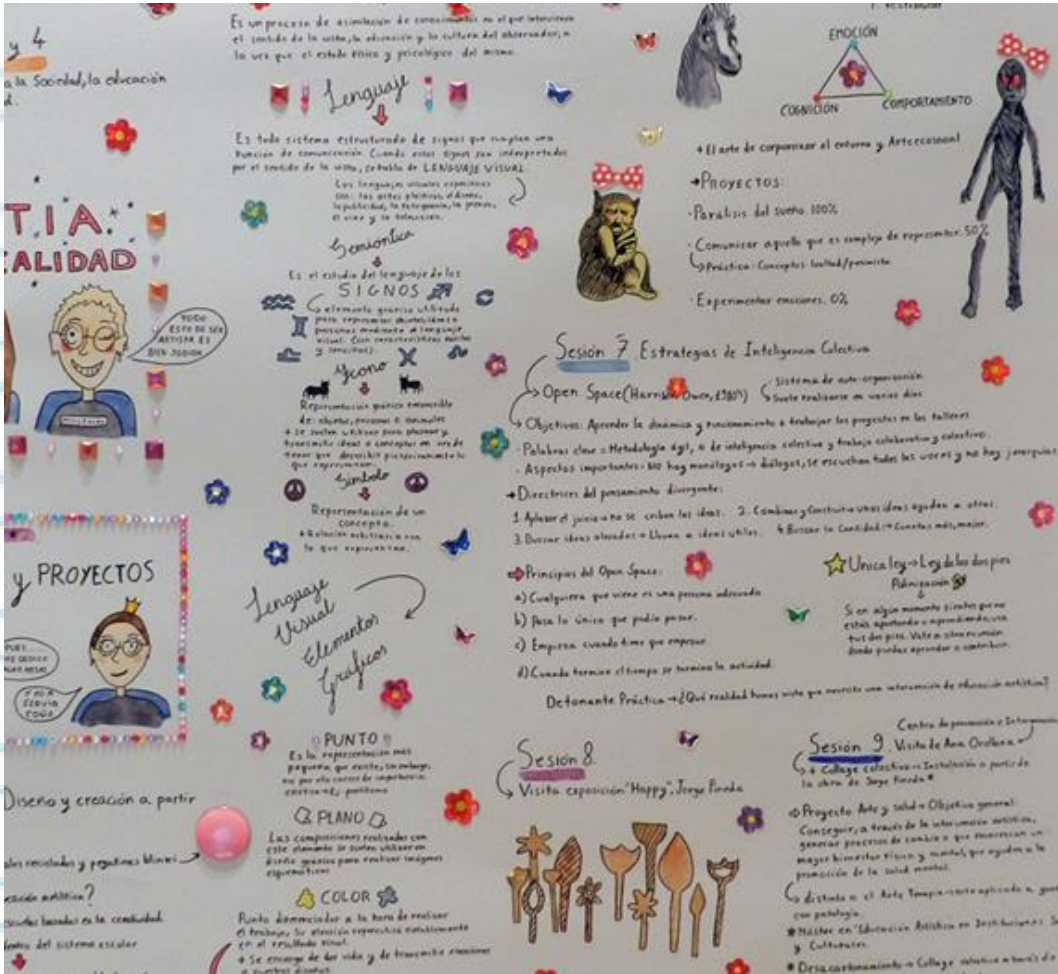 y 4
a la Sociedad, la educación
T.I.A.
ALIDAD
TODO
ESTO DE SER
ARTISTA ES
BIEN JODIDO
y PROYECTOS
PUES...
Y NO A
SERVIR
Diseño y creación a partir
reciclados y pegatinas blinki
artística?
basadas en la creatividad
dentro del sistema escolar
Es un proceso de asimilación de conocimientos en el que intervienen
el sentido de la vista, la educación y la cultura del observador, a
la vez que el estado físico y psicológico del mismo.
Lenguaje
Es todo sistema estructurado de signos que cumplan una
función de comunicación. Cuando estos signos son interpretados
por el sentido de la vista, se habla de LENGUAJE VISUAL
Los lenguajes visuales específicos
son: las artes plásticas, el diseño,
la publicidad, la fotografía, la prensa,
el cine y la televisión.
Semiótica
Es el estudio del lenguaje de los
SIGNOS
elemento gráfico utilizado
para representar
personas mediante el lenguaje
visual. Con características
y sencillas).
Ycono
Representación gráfica
de: objetos, personas o animales
+ Se suelen utilizar para plasmar y
transmitir ideas o conceptos en vez de
tener que describir pictóricamente lo
que representan.
Símbolo
Representación de un
concepto.
+ Relación arbitraria con
lo que representan.
Lenguaje
Visual
Elementos
Gráficos
PUNTO
Es la representación más
pequeña que existe, sin embargo,
no por ello carece de importancia
PLANO
Las composiciones realizadas con
este elemento se suelen utilizar en
diseño gráfico para realizar imágenes
esquemáticas
COLOR
Punto a la hora de realizar
el trabajo. Su elección repercutirá notablemente
en el resultado final.
+ Se encarga de dar vida y de transmitir emociones
a nuestros diseños.
EMOCIÓN
COGNICIÓN
COMPORTAMIENTO
+ El arte de corporeizar el entorno y
→ PROYECTOS:
- Parálisis del sueño. 100%
- Comunicar aquello que es complejo de representar. 50%
Práctica - Conceptos
- Experimentar emociones. 0%
Sesión 7. Estrategias de Inteligencia Colectiva
Open Space (Harrison Owen,
Sistema de auto-organización
Suele realizarse en varios días
Objetivos: Aprender la dinámica y funcionamiento + trabajar los proyectos en los talleres.
- Palabras clave = Metodología ágil, + de inteligencia colectiva y trabajo colaborativo y colectivo.
- Aspectos importantes: No hay monólogos → diálogos, se escuchan todas las voces y no hay jerarquías
→ Directrices del pensamiento divergente:
1. Aplazar el juicio → no se critican las ideas. 2. Combinar y Construir → unas ideas ayudan a otras.
3. Buscar ideas alocadas → Llevan a ideas útiles. 4. Buscar la Cantidad → Cuantas más, mejor.
Principios del Open Space:
a) Cualquiera que viene es una persona adecuada
b) Pasa lo único que podía pasar.
c) Empieza cuando tiene que empezar.
d) Cuando termina el tiempo se termina la actividad.
Unica ley → Ley de los dos pies
Polinización
Si en algún momento sientes que no
estás aportando o aprendiendo, usa
tus dos pies. Vete a otra reunión
donde puedas aprender o contribuir.
Detonante Práctica → ¿Qué realidad hemos visto que necesite una intervención de educación artística?
Sesión 8.
Visita exposición "Happy", Jorge Pineda
Centro de prevención e
Sesión 9. Visita de Ana Orellana
+ Collage colectivo → Instalación a partir de
la obra de Jorge Pineda *
Proyecto Arte y salud → Objetivo general:
Conseguir, a través de la intervención artística,
generar procesos de cambio que favorezcan un
mayor bienestar físico y mental, que ayuden a la
promoción de la salud mental.
distinto a el Arte Terapia → arte aplicado a
con patología.
* Máster en "Educación Artística en Instituciones
y Culturales.
* Desacartonamiento → Collage colectivo a través de